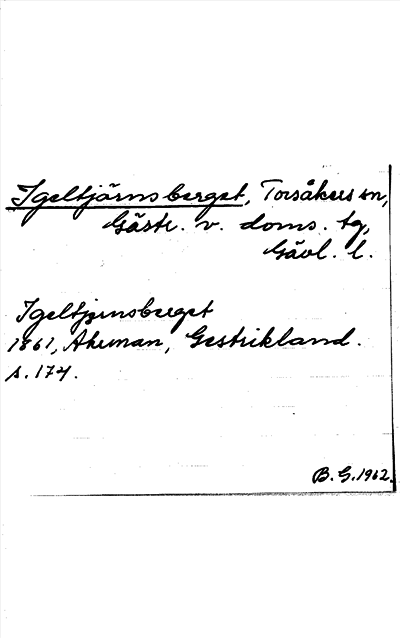 Igeltjärnsberget, Torsåkers sn,
Gästr. v. doms. tg,
Gävl. l.
Igeltjernsberget
1861, Akerman, Gestrikland.
s. 174.
B. G. 1962.